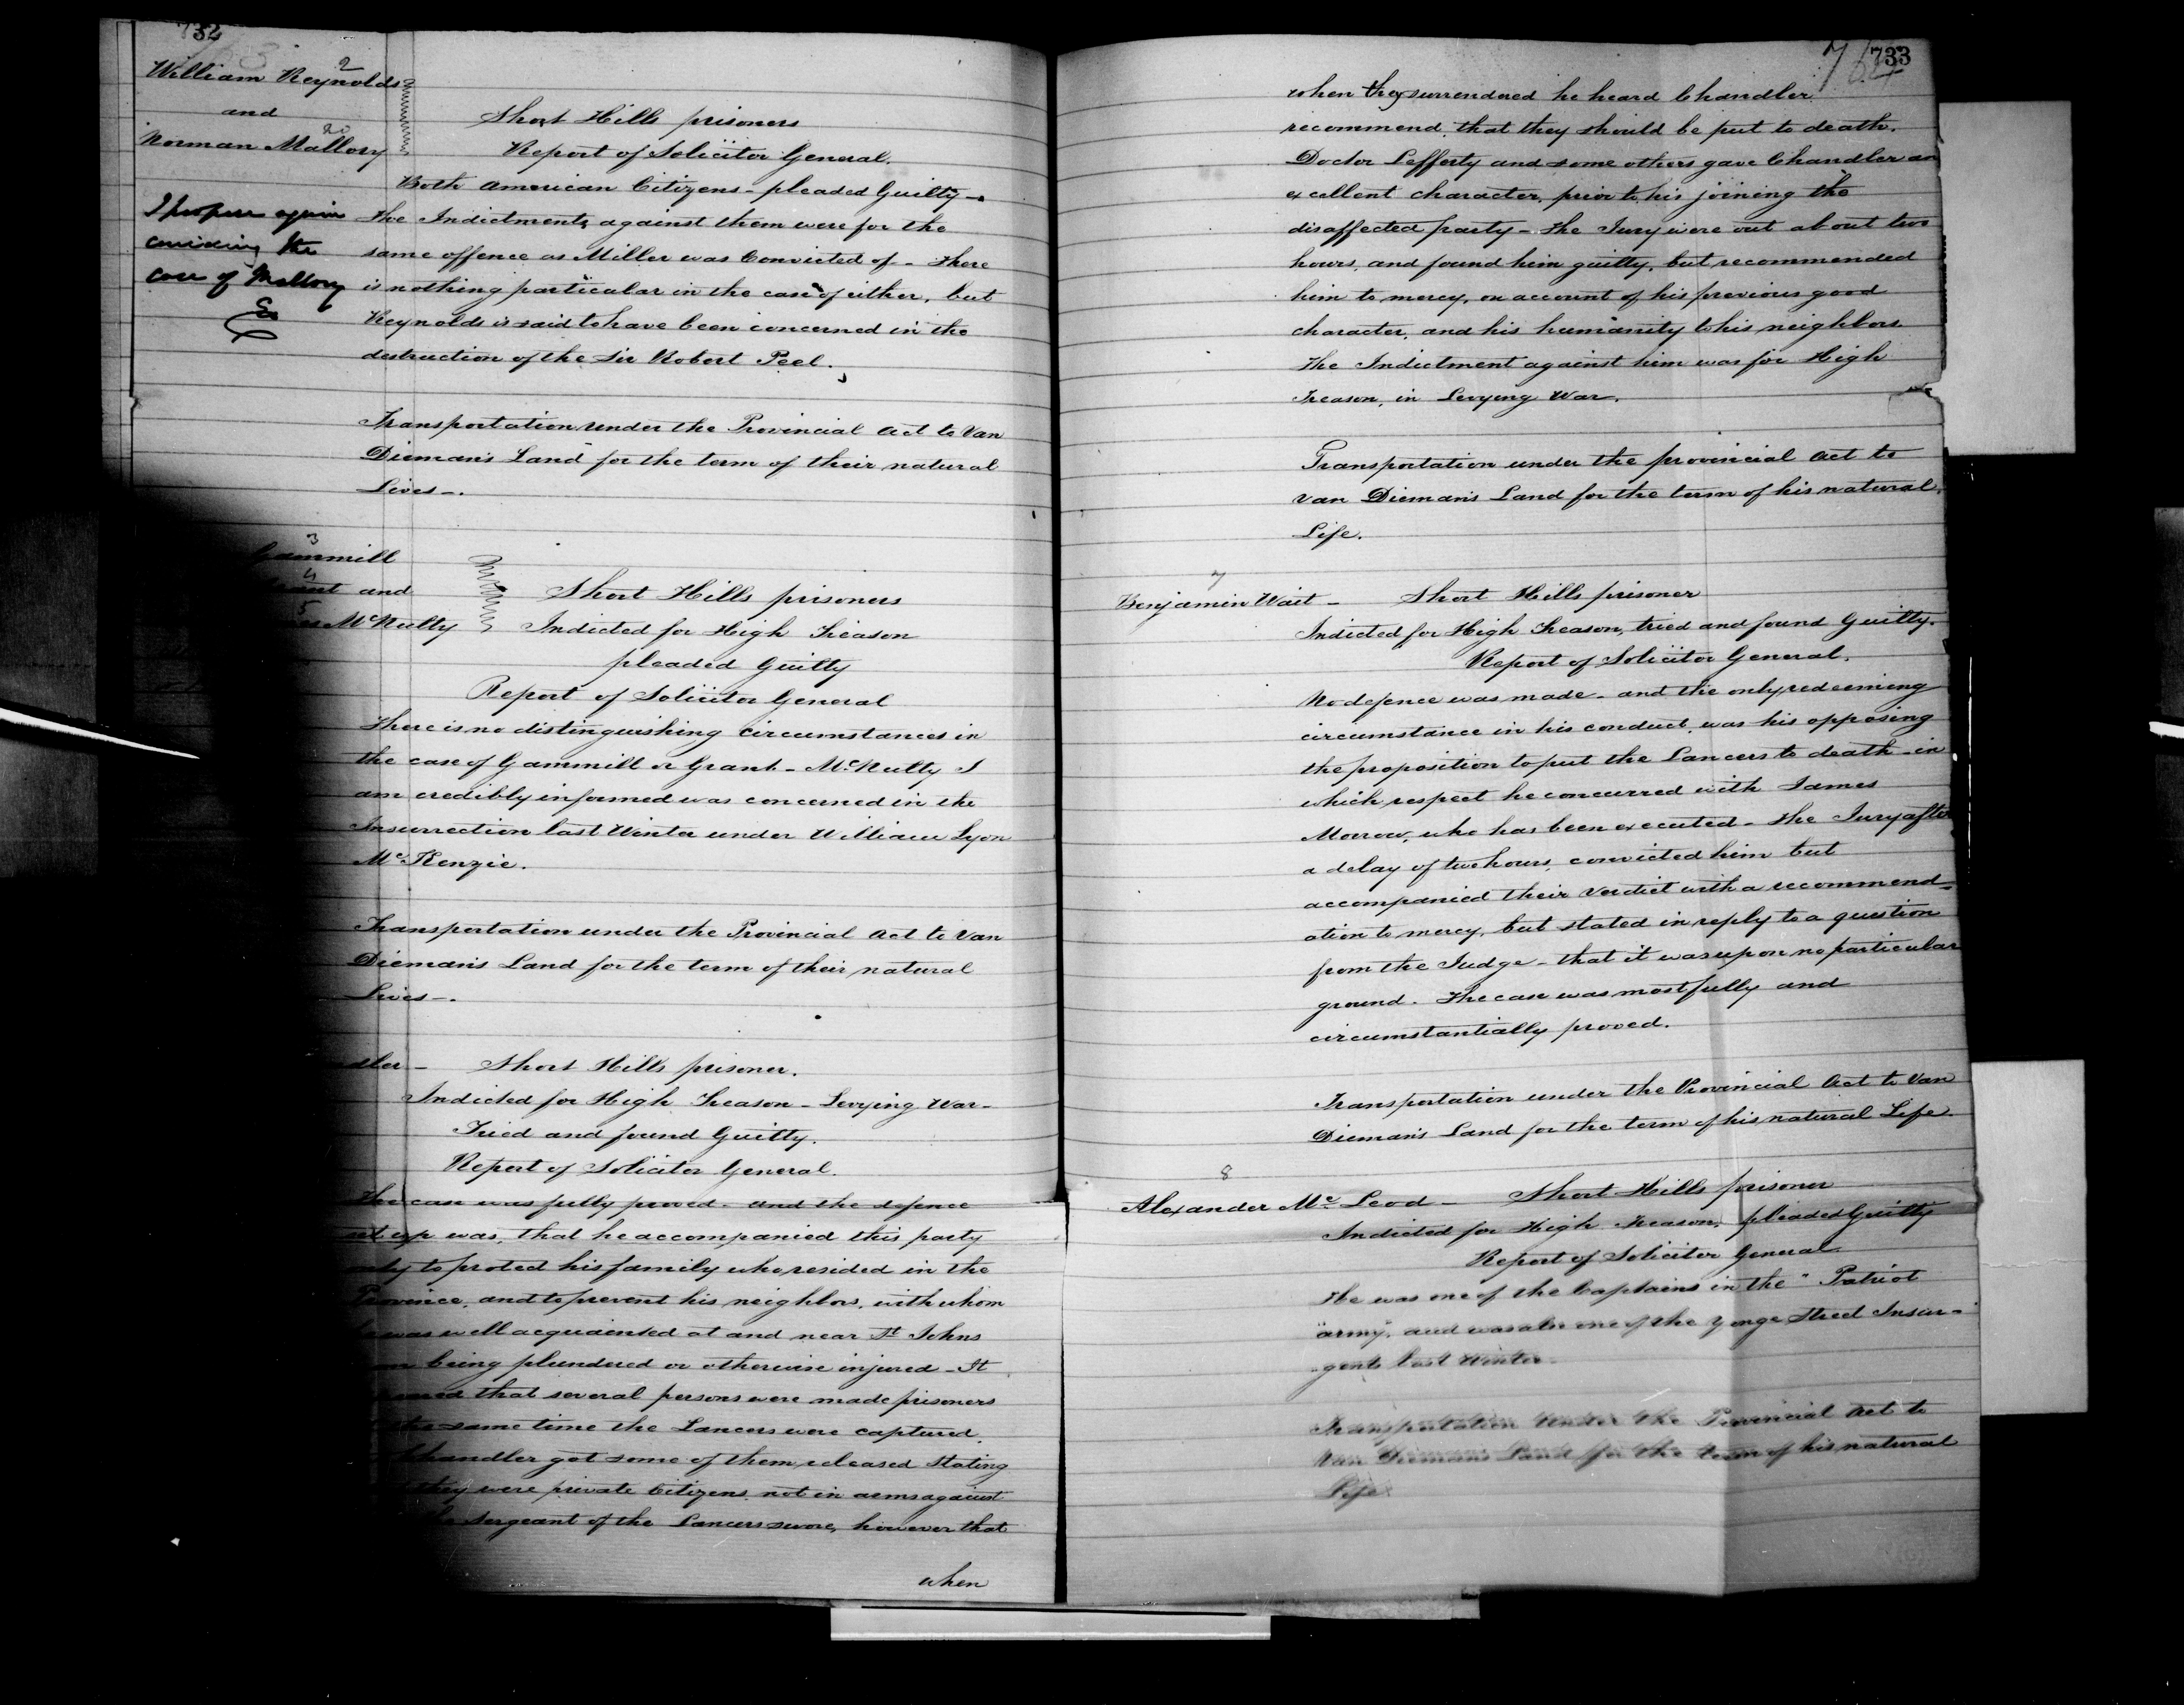 732
William Reynolds 2
and
Norman Mallory 20
Short Hills prisoners
Report of Solicitor General.
Both American Citizens - pleaded Guilty -
I propose again
the Indictments against them were for the
considering the
same offence as Miller was Convicted of - There
case of Mallory
is nothing particular in the case of either, but
Reynolds is said to have been concerned in the
destruction of the Sir Robert Peel.
Transportation under the Provincial Act to Van
Dieman's Land for the term of their natural
Lives -.
3
Gammill
4
and
5
McNulty
Short Hills prisoners
Indicted for High Treason
pleaded Guilty
Report of Solicitor General
There is no distinguishing circumstances in
the case of Gammill or Grant - McNulty I
am credibly informed was concerned in the
Insurrection last Winter under William Lyon
McKenzie.
Transportation under the Provincial Act to Van
Dieman's Land for the term of their natural
Lives -.
dler - Short Hills prisoner.
Indicted for High Treason - Levying War -
Tried and found Guilty.
Report of Solicitor General.
The case was fully proved - and the defence
set up was, that he accompanied this party
to protect his family who resided in the
Province, and to prevent his neighbors, with whom
was well acquainted at and near St Johns
being plundered or otherwise injured - It
that several persons were made prisoners
the same time the Lancers were captured.
Chandler got some of them released stating
they were private Citizens not in arms against
Sergeant of the Lancers swore, however that
when
733
when they surrendered he heard Chandler
recommend that they should be put to death.
Doctor Lefferty and some others gave Chandler an
excellent character, prior to his joining the
disaffected party - The Jury were out about two
hours, and found him guilty, but recommended
him to mercy, on account of his previous good
character, and his humanity to his neighbors.
The Indictment against him was for High
Treason, in Levying War.
Transportation under the provincial Act to
Van Dieman's Land for the term of his natural
Life.
7
Benjamin Wait - Short Hills prisoner
Indicted for High Treason, tried and found Guilty.
Report of Solicitor General.
No defence was made - and the only redeeming
circumstance in his conduct, was his opposing
the proposition to put the Lancers to death - in
which respect he concurred with James
Morrow, who has been executed - The Jury after
a delay of two hours, convicted him but
accompanied their verdict with a recommend-
ation to mercy, but stated in reply to a question
from the Judge - that it was upon no particular
ground. The case was most fully and
circumstantially proved.
Transportation under the Provincial Act to Van
Dieman's Land for the term of his natural Life
8
Alexander McLeod - Short Hills prisoner
Indicted for High Treason, pleaded Guilty
Report of Solicitor General
He was one of the Captains in the "Patriot
"army", and was also one of the Yonge Street Insur-
-gents last Winter -
Transportation under the Provincial Act to
Van Diemans Land for the term of his natural
Life